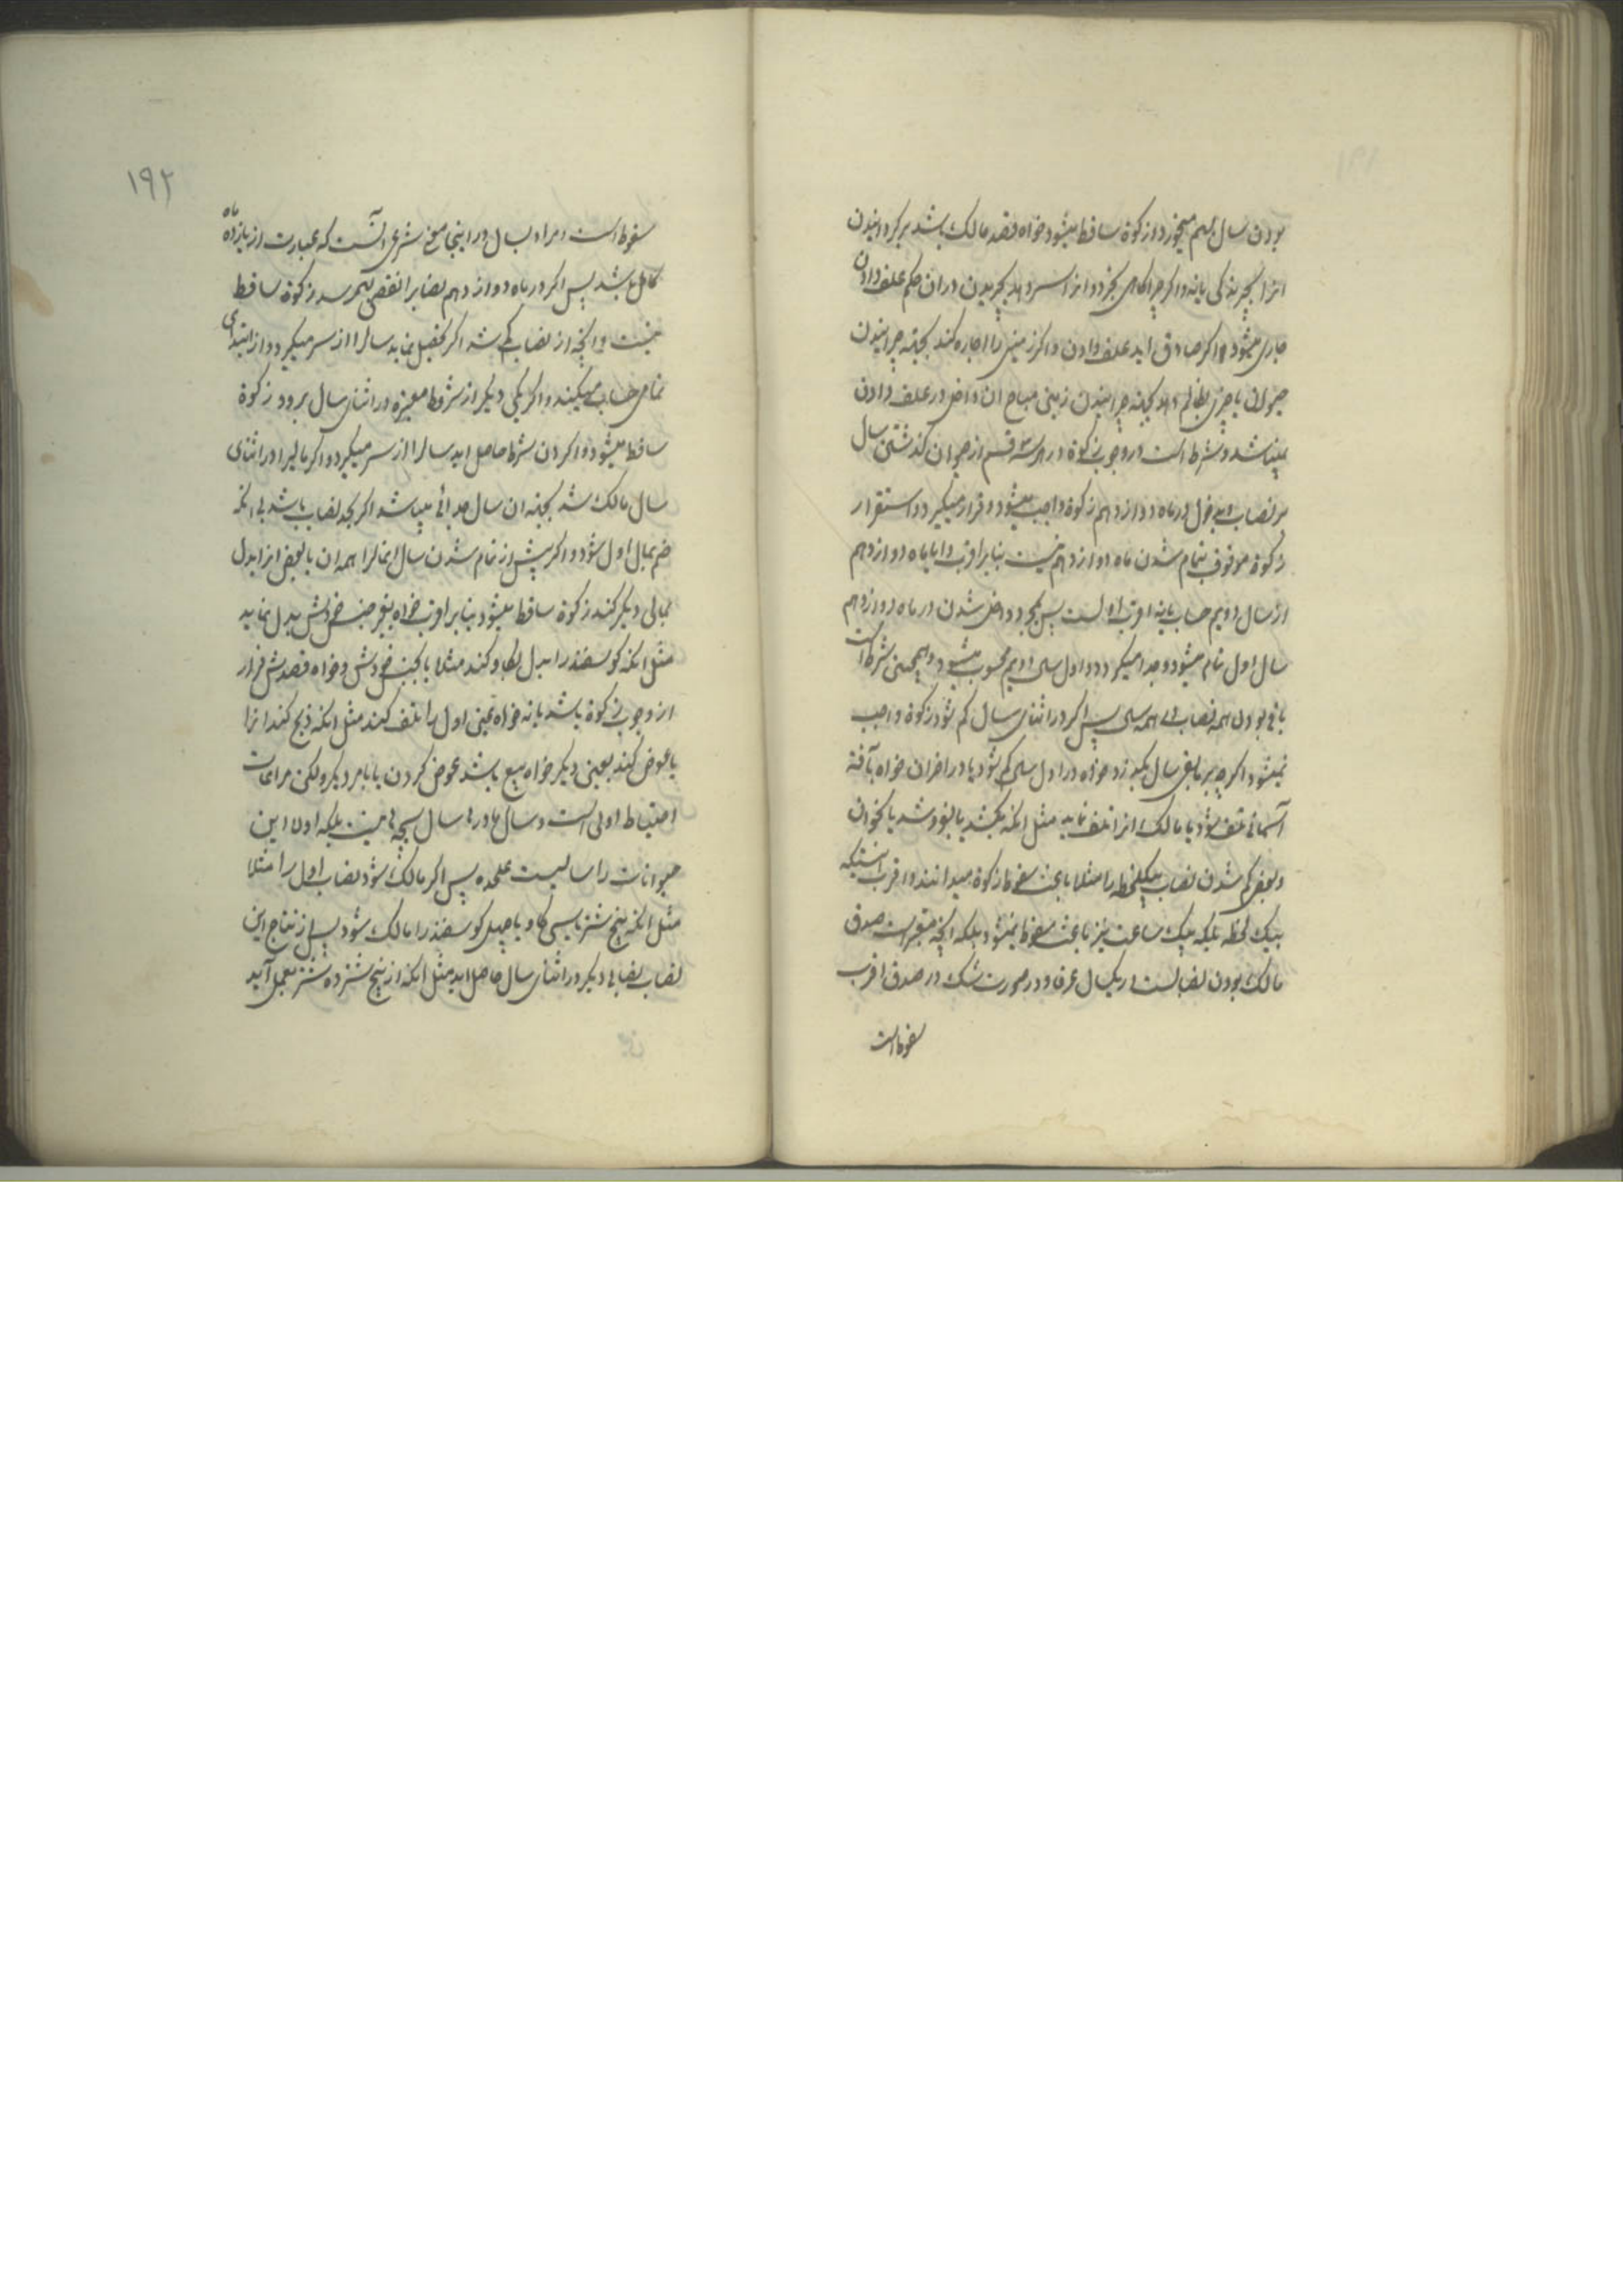 بودن سال بهم میخورد و زکوة ساقط میشود خواه قصد مالک باشد برگردانیدن
انرا بچرندگی یا نه و اگر چراگاهی بخرد و انرا سر دهد بچریدن در ان حکم علف دادن
جاری میشود و اگر صادق اید علف دادن و اگر زمینی را اجاره کند بجهة چرانیدن
حیوان یا چیزی بظالم دهد بجهة چرانیدن زمینی مباح ان داخل در علف دادن
نمیباشد و شرط است در وجوب زکوة در هر سه قسم از حیوان گذشتن سال
بر نصاب و بدخول در ماه دوازدهم زکوة واجب میشود و قرار میگیرد و استقرار
زکوة موقوف بتمام شدن ماه دوازدهم نیست بنابر اقرب و ایا ماه دوازدهم
از سال دویم حساب یا نه اقرب اولست پس بمجرد داخل شدن در ماه دوازدهم
سال اول تمام میشود و جدا میگیرد و اول سال دویم محسوب میشود و همچنین شرط است
باقی بودن همه نصاب در همه سال پس اگر در اثنای سال کم شود زکوة واجب
نمیشود اگرچه بر مابقی سال بگذرد خواه در اول سال کم شود یا در اخر ان خواه بآفة
آسمانی تلف شود یا مالک انرا تلف نماید مثل انکه بکشد یا بفروشد یا نحو ان
و بعضی کم شدن نصاب بیکلحظه را مثلا باعث سقوط زکوة میدانند و اقرب انستکه
بیک لحظه بلکه بیک ساعت نیز باعث سقوط نمیشود بلکه انچه معتبر است صدق
مالک بودن نصابست در یکسال عرفا و در صورت شک در صدق اقرب
سقوط است
۱۹۲
سقوط است و مراد بسال در اینجا معنی شرعی انست که عبارت از یازده ماه
کامل باشد پس اگر در ماه دوازدهم نصابرا نقصی بهمرسد زکوة ساقط
نیست و انچه از نصاب کم شد اگر تحصیل نماید سال را از سر میگیرد و از ابتدای
تمامی حساب میکند و اگر یکی دیگر از شروط معتبره در اثنای سال برود زکوة
ساقط میشود و اگر ان شرط حاصل اید سال را از سر میگیرد و اگر مالیرا در اثنای
سال مالک شد بجهة ان سال جدائی میباشد اگر بحد نصاب باشد بی انکه
ضم بمال اول شود و اگر پیش از تمام شدن سال انمال را همه ان یا بعض انرا بدل
بمالی دیگر کند زکوة ساقط میشود بنابر اقرب خواه بغیر جنس خودش بدل نماید
مثل انکه گوسفند را بدل بگاو کند مثلا یا بجنس خودش و خواه قصدش فرار
از وجوب زکوة باشد یا نه خواه عین اول را تلف کند مثل انکه ذبح کند انرا
یا عوض کند بعینی دیگر خواه بیع باشد عوض کردن یا بامر دیگر ولکن مراعات
احتیاط اولی است و سال مادرها سال بچه ها نیست بلکه اولاد این
حیوانات را سالیست علیحده پس اگر مالک شود نصاب اول را مثلا
مثل انکه پنج شتر یا سی گاو یا چهل گوسفند را مالک شود پس از نتاج این
نصاب نصابی دیگر در اثنای سال حاصل اید مثل انکه از پنج شتر ده شتر بعمل آید